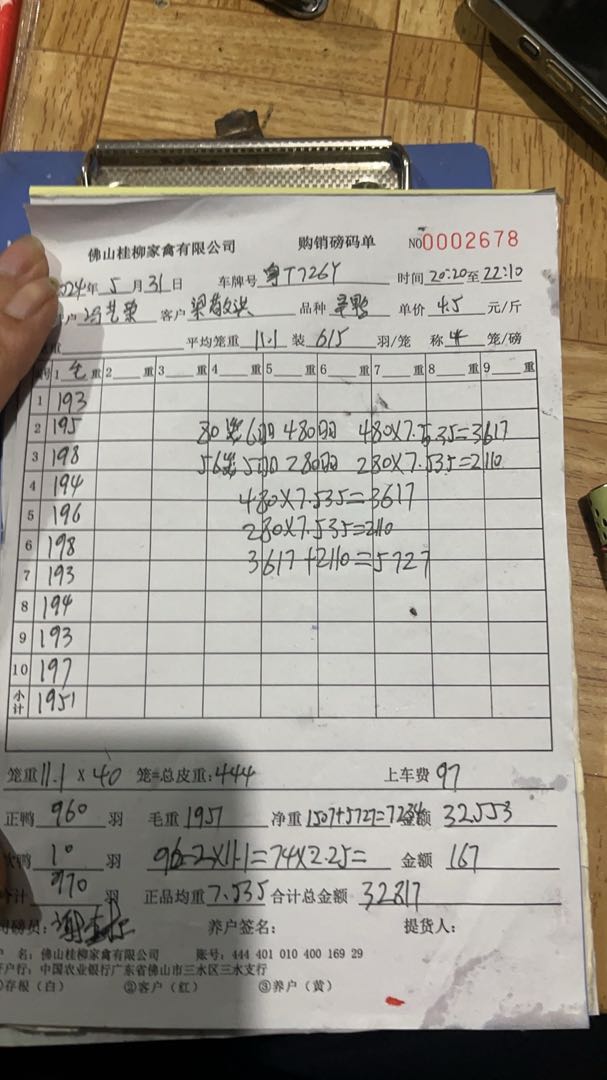 佛山桂柳家禽有限公司 购销磅码单 NO 0002678
2024年 5 月 31 日 车牌号 粤T7726Y 时间 20:20 至 22:10
户 客户 梁 品种 单价 4.5 元/斤
重 平均笼重 11.1 装 6/5 羽/笼 称 4 笼/磅
号 1 毛 重 2 重 3 重 4 重 5 重 6 重 7 重 8 重 9 重
1 193
2 195 80笼6羽 480羽 480×7.535=3617
3 198 56笼5羽 280羽 280×7.535=2110
4 194 480×7.535=3617
5 196 280×7.535=2110
6 198 3617+2110=5727
7 193
8 194
9 193
10 197
小计 1951
笼重 11.1 × 40 笼=总皮重: 444 上车费 97
正鸭 960 羽 毛重 1951 净重 1507+5727=7234 金额 32553
鸭 10 羽 96-2×11.1=74×2.25= 金额 167
合计 970 羽 正品均重 7.535 合计总金额 32817
司磅员: 养户签名: 提货人:
户 名: 佛山桂柳家禽有限公司 账号: 444 401 010 400 169 29
开户行: 中国农业银行广东省佛山市三水区三水支行
①存根（白） ②客户（红） ③养户（黄）